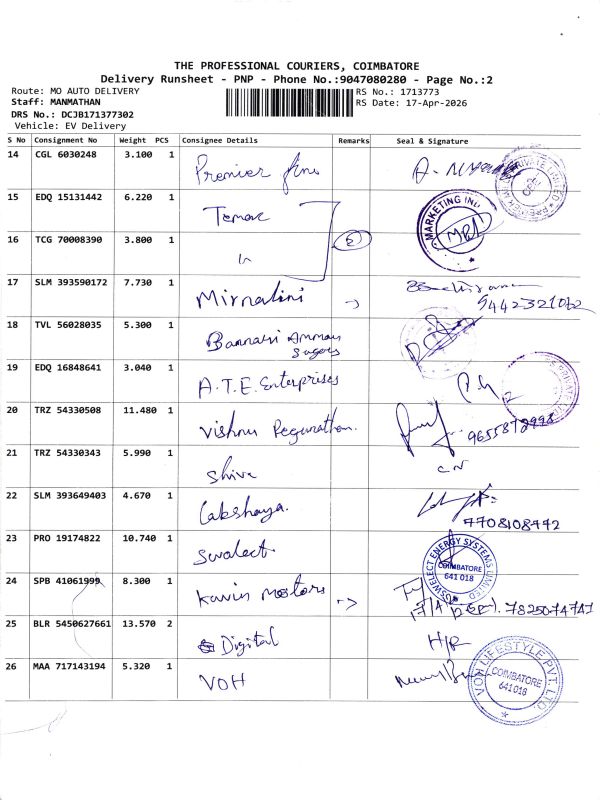 THE PROFESSIONAL COURIERS, COIMBATORE
Delivery Runsheet - PNP - Phone No.:9047080280 - Page No.:2
Route: MO AUTO DELIVERY
RS No.: 1713773
Staff: MANMATHAN
RS Date: 17-Apr-2026
DRS No.: DCJB171377302
Vehicle: EV Delivery
S No Consignment No Weight PCS Consignee Details Remarks Seal & Signature
14 CGL 6030248 3.100 1 Premier
15 EDQ 15131442 6.220 1 MARKETING
16 TCG 70008390 3.800 1
17 SLM 393590172 7.730 1 Mirnalini 9442321062
18 TVL 56028035 5.300 1 Bannari Amman Sugars
19 EDQ 16848641 3.040 1 A.T.E. Enterprises
20 TRZ 54330508 11.480 1 Vishnu 9655872998
21 TRZ 54330343 5.990 1 Shiva
22 SLM 393649403 4.670 1 Lakshaya. 7708108772
23 PRO 19174822 10.740 1 Swelect ENERGY SYSTEMS LIMITED COIMBATORE 641 018
24 SPB 41061999 8.300 1 Kavin Mostors 7825074747
25 BLR 5450627661 13.570 2 Digital
26 MAA 717143194 5.320 1 VOH VOH LIFESTYLE PVT. LTD. COIMBATORE 641 018